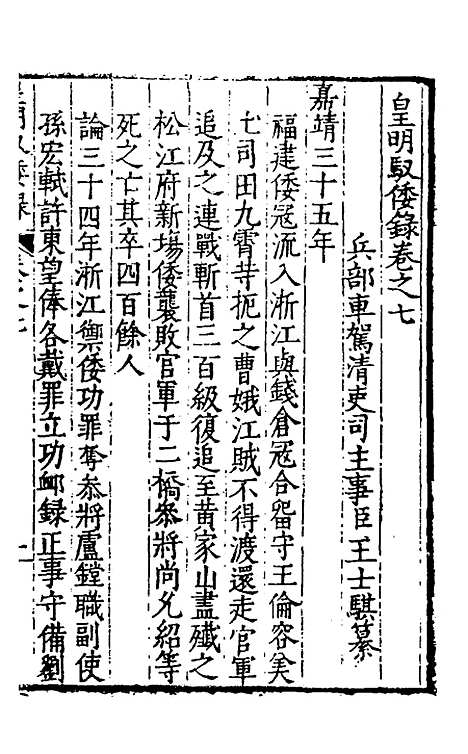 皇明馭倭錄卷之七
兵部車駕清吏司主事臣王士騏纂
嘉靖三十五年
福建倭冦流入浙江與錢倉冦合畱守王倫容美
土司田九霄等扼之曹娥江賊不得渡還走官軍
追及之連戰斬首三百級復追至黄家山盡殲之
松江府新塲倭襲敗官軍于二橋叅將尚允紹等
死之亡其卒四百餘人
論三十四年浙江禦倭功罪奪叅將盧鏜職副使
孫宏軾許東望俸各戴罪立功卹録正事守備劉